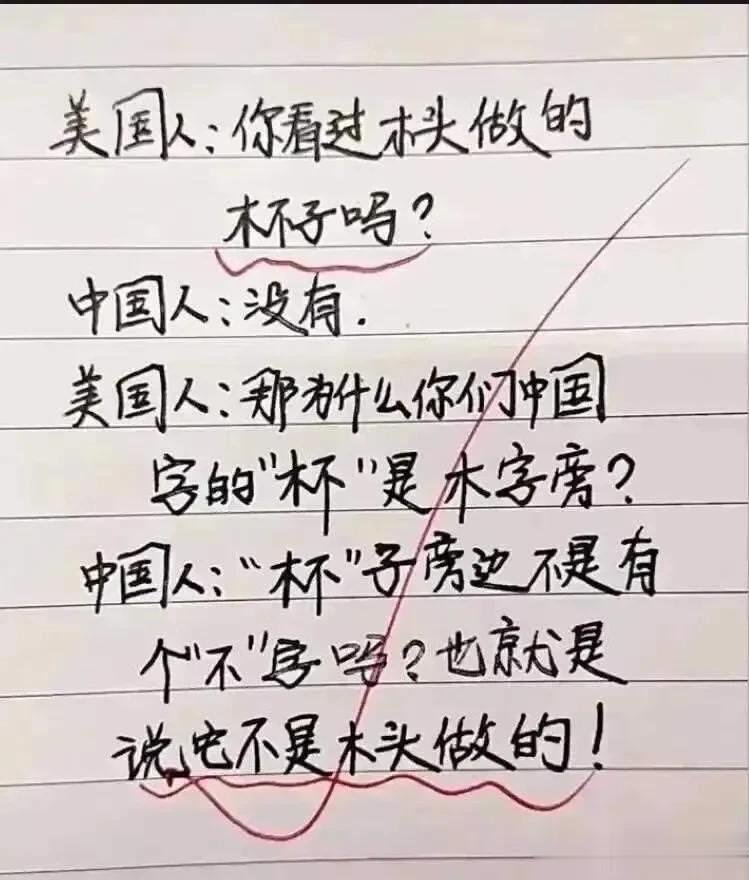 美国人:你看过木头做的
杯子吗?
中国人:没有.
美国人:那为什么你们中国
字的"杯"是木字旁?
中国人:"杯"子旁边不是有
个"不"字吗?也就是
说,它不是木头做的!